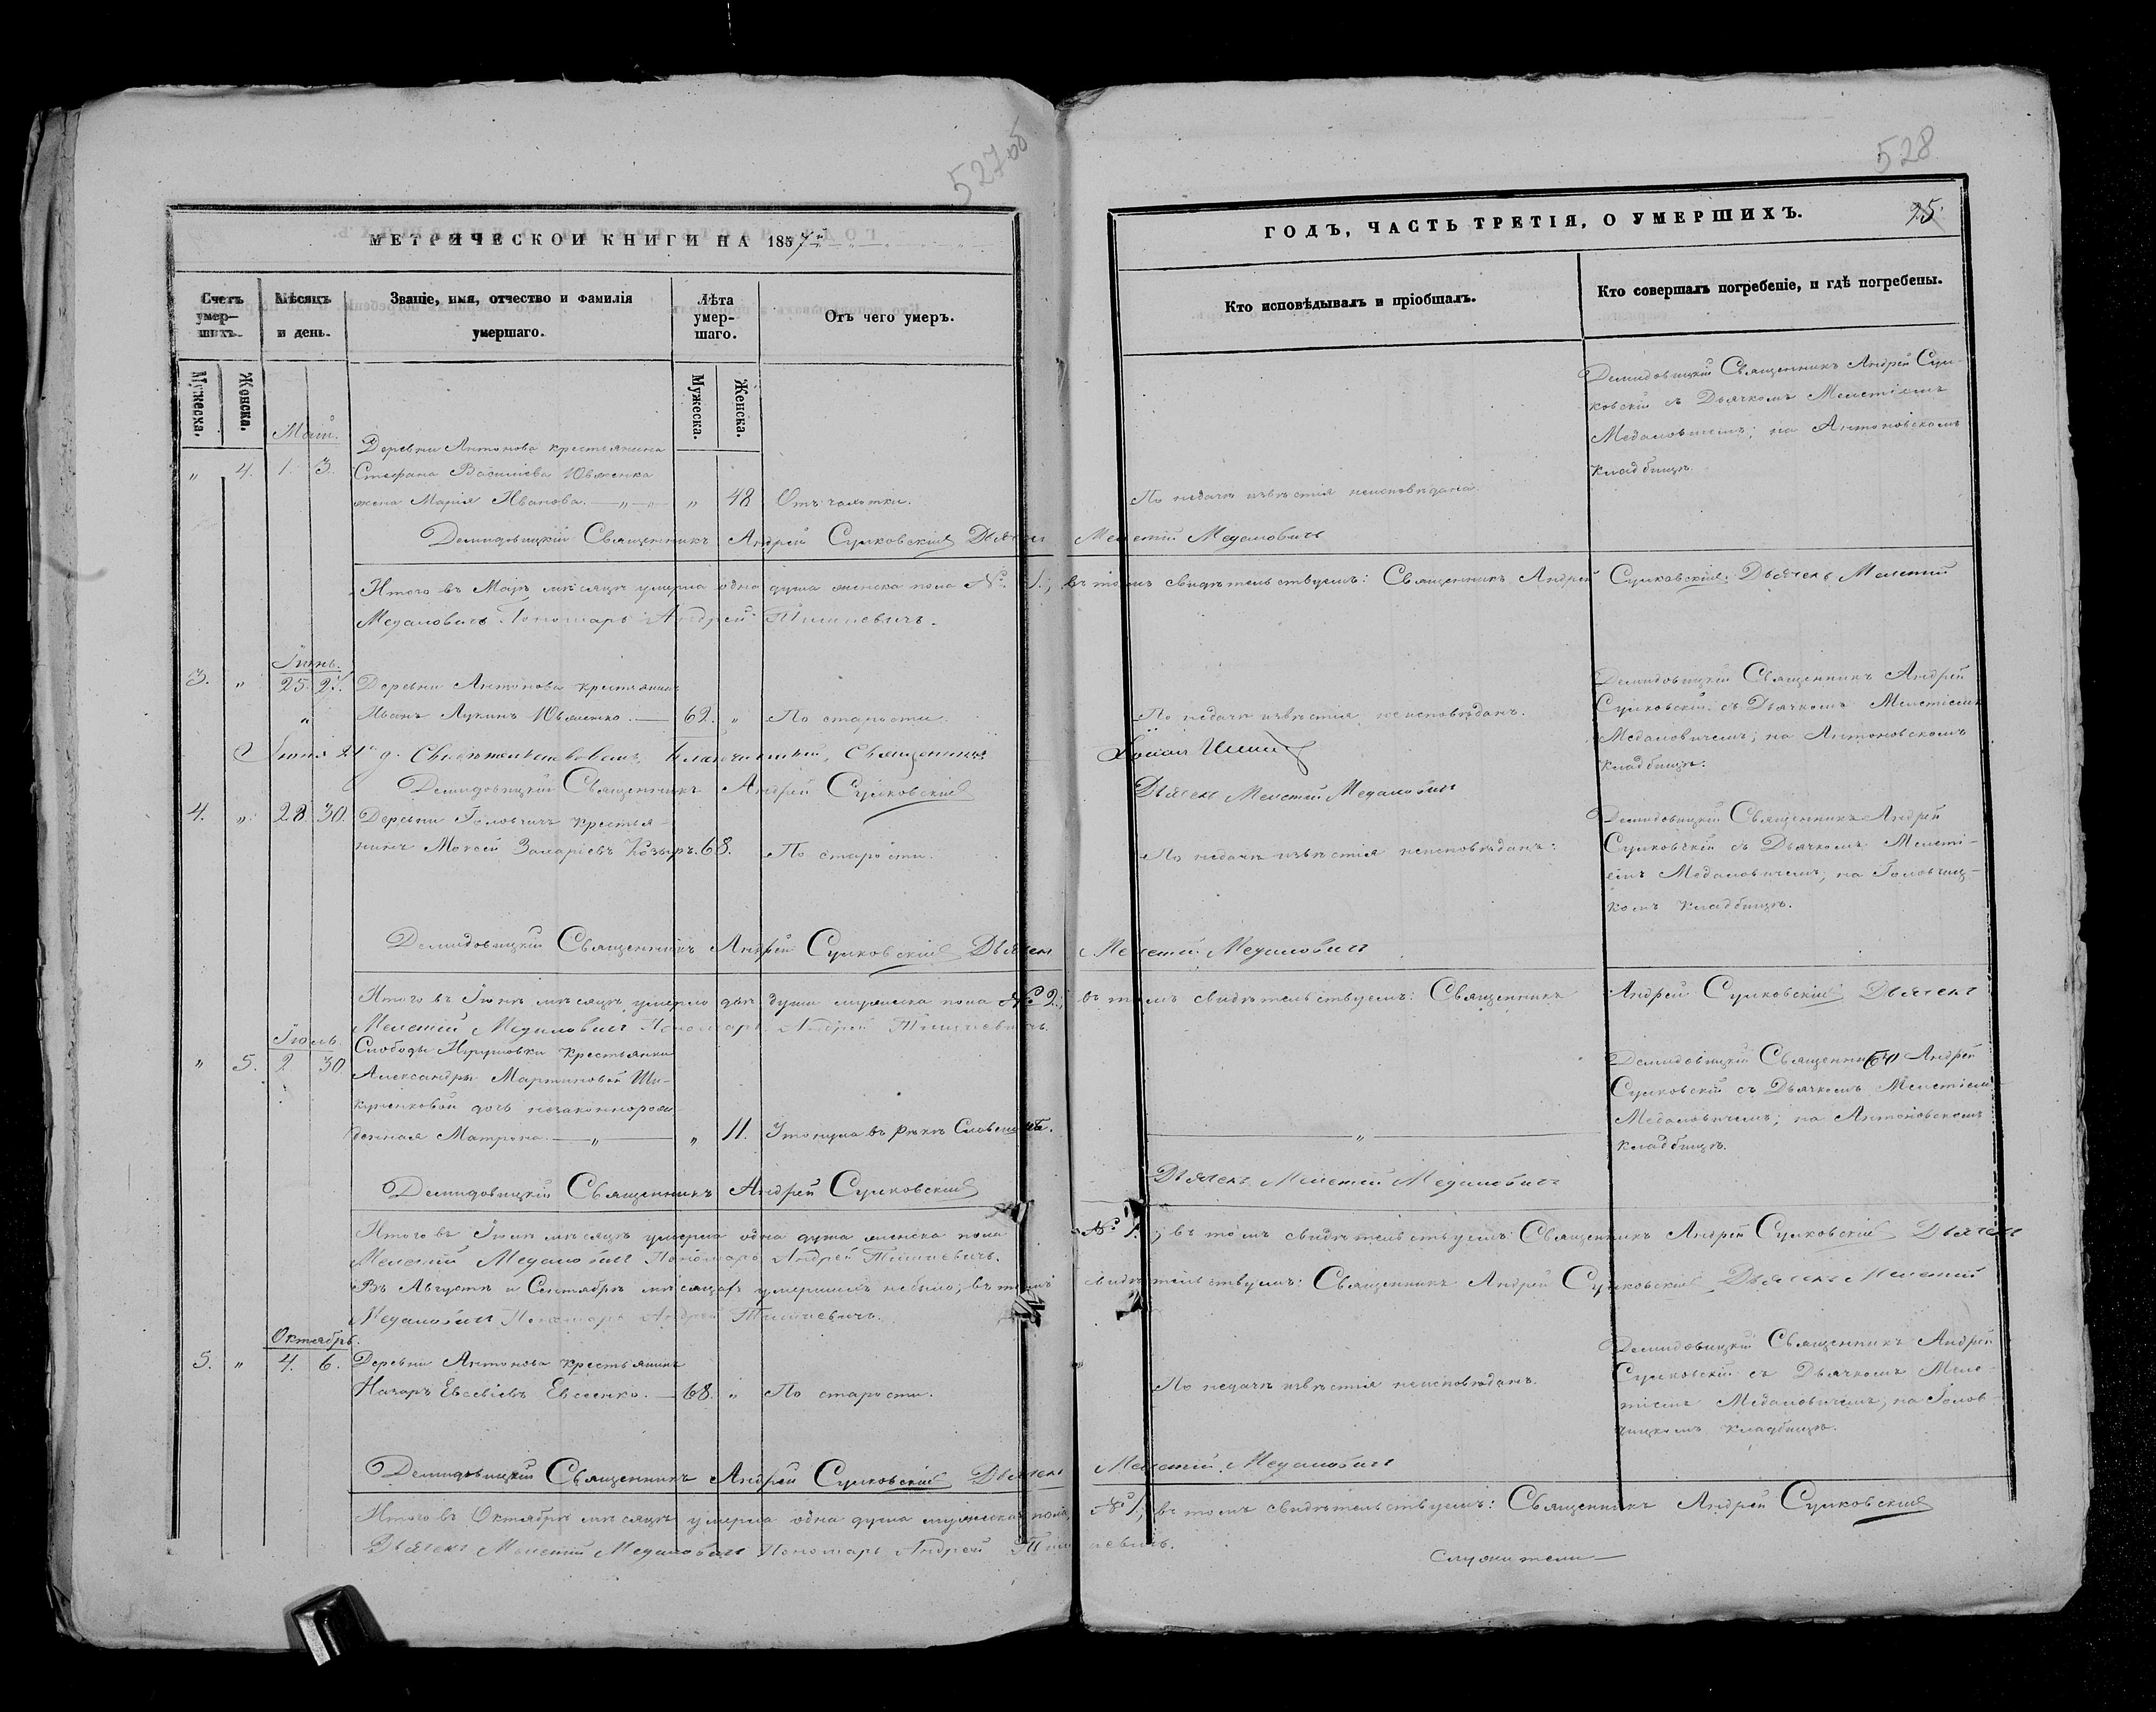 527 об
528
МЕТРИЧЕСКОЙ КНИГИ НА 1857й
ГОДЪ, ЧАСТЬ ТРЕТІЯ, О УМЕРШИХЪ.
25.
Счетъ умер-
шихъ.
Мѣсяцъ
и день.
Званіе, имя, отчество и фамилія
умершаго.
Лѣта
умер-
шаго.
Отъ чего умеръ.
Кто исповѣдывалъ и пріобщалъ.
Кто совершалъ погребеніе, и гдѣ погребены.
Мужеска.
Женска.
Мужеска.
Женска.
Май.
„ 4. 1. 3.
Деревни Антонова крестьянина
Стефана Василіева Ювженка
жена Марія Иванова. — „ — „ —
„ 48
Отъ чахотки.
По недачѣ извѣстія неисповѣдана.
Демидовицкій Священникъ Андрей Сул-
ковскій съ Дьячкомъ Мелетіемъ
Медаловичемъ; на Антоновскомъ
кладбищѣ.
Демидовицкій Священникъ Андрей Сулковскій Дьячекъ Мелетій Медаловичъ
Итого въ Маѣ мѣсяцѣ умерла одна душа женска пола №. 1.; въ томъ свидѣтельствуемъ: Священникъ Андрей Сулковскій Дьячекъ Мелетій
Медаловичъ Пономарь Андрей Тишкевичъ.
Іюнь.
3. „ 25. 27.
Деревни Антонова крестьянинъ
Иванъ Лукинъ Ювженко. —
62. „
По старости.
По недачѣ извѣстія неисповѣданъ.
Демидовицкій Священникъ Андрей
Сулковскій съ Дьячкомъ Мелетіемъ
Медаловичемъ; на Антоновскомъ
кладбищѣ.
Священникъ
Демидовицкій Священникъ Андрей Сулковскій
Дьячекъ Мелетій Медаловичъ
4. „ 28 30.
Деревни Головчичъ крестья-
нинъ Мойсей Захаріевъ Козырь.
68.
По старости.
По недачѣ извѣстія неисповѣданъ:
Демидовицкій Священникъ Андрей
Сулковскій съ Дьячкомъ Мелеті-
емъ Медаловичемъ; на Головчиц-
комъ кладбищѣ.
Демидовицкій Священникъ Андрей Сулковскій Дьячекъ Мелетій Медаловичъ
Итого въ Іюнѣ мѣсяцѣ умерло двѣ души мужеска пола № 2; въ томъ свидѣтельствуемъ: Священникъ Андрей Сулковскій Дьячекъ
Мелетій Медаловичъ Пономарь Андрей Тишкевичъ.
Іюль.
„ 5. 2 30
Слободы крестьянки
Александры Мартиновой Ши-
куленковой дочь незаконнорож-
денная Матрона — „ —
„ 11.
Утонула въ рѣкѣ
— „ —
Демидовицкій Священникъ Андрей
Сулковскій съ Дьячкомъ Мелетіемъ
Медаловичемъ; на Антоновскомъ
кладбищѣ.
Демидовицкій Священникъ Андрей Сулковскій
Дьячекъ Мелетій Медаловичъ
Итого въ Іюлѣ мѣсяцѣ умерла одна душа женска пола № 1.; въ томъ свидѣтельствуемъ: Священникъ Андрей Сулковскій Дьячекъ
Мелетій Медаловичъ Пономарь Андрей Тишкевичъ.
Въ Августѣ и Сентябрѣ мѣсяцахъ умершихъ небыло; въ томъ свидѣтельствуемъ: Священникъ Андрей Сулковскій Дьячекъ Мелетій
Медаловичъ Пономарь Андрей Тишкевичъ.
Октябрь.
5. „ 4. 6.
Деревни Антонова крестьянинъ
Назаръ Евсевіевъ Евсеенко. —
68. „
По старости.
По недачѣ извѣстія неисповѣданъ.
Демидовицкій Священникъ Андрей
Сулковскій съ Дьячкомъ Меле-
тіемъ Медаловичемъ; на Голов-
чицкомъ кладбищѣ.
Демидовицкій Священникъ Андрей Сулковскій Дьячекъ Мелетій Медаловичъ
Итого въ Октябрѣ мѣсяцѣ умерла одна душа мужеска пола, № 1; въ томъ свидѣтельствуемъ: Священникъ Андрей Сулковскій
Дьячекъ Мелетій Медаловичъ Пономарь Андрей Тишкевичъ.
Служители —